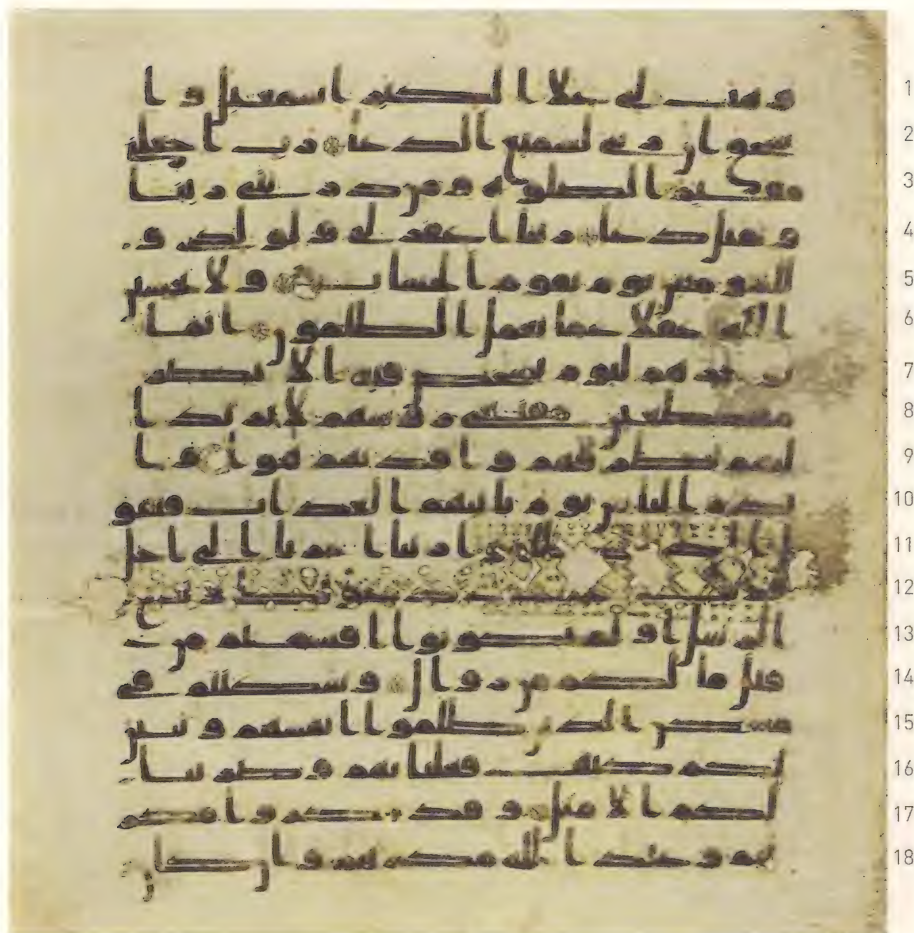 و هب لى علا الكبر اسمعيل و ا 1
سحق ان ربى لسميع الدعا رب اجعلنى 2
مقيم الصلوه و من ذريتى ربنا 3
و تقبل دعا ربنا اغفر لى و لولدى و 4
للمومنين يوم يقوم الحساب و لا تحسبن 5
الله غفلا عما يعمل الظلمون انما 6
يوخرهم ليوم تشخص فيه الابصر 7
مهطعين مقنعى روسهم لا يرتد ا 8
ليهم طرفهم و افدتهم هوا و ا 9
نذر الناس يوم ياتيهم العذاب فيقو 10
ل الذين ظلموا ربنا اخرنا الى اجل 11
قريب نجب دعوتك و نتبع 12
الرسل او لم تكونوا اقسمتم من 13
قبل ما لكم من زوال و سكنتم فى 14
مسكن الذين ظلموا انفسهم و تبين 15
لكم كيف فعلنا بهم و ضربنا 16
لكم الامثل و قد مكروا مكر 17
هم و عند الله مكرهم و ان كان 18